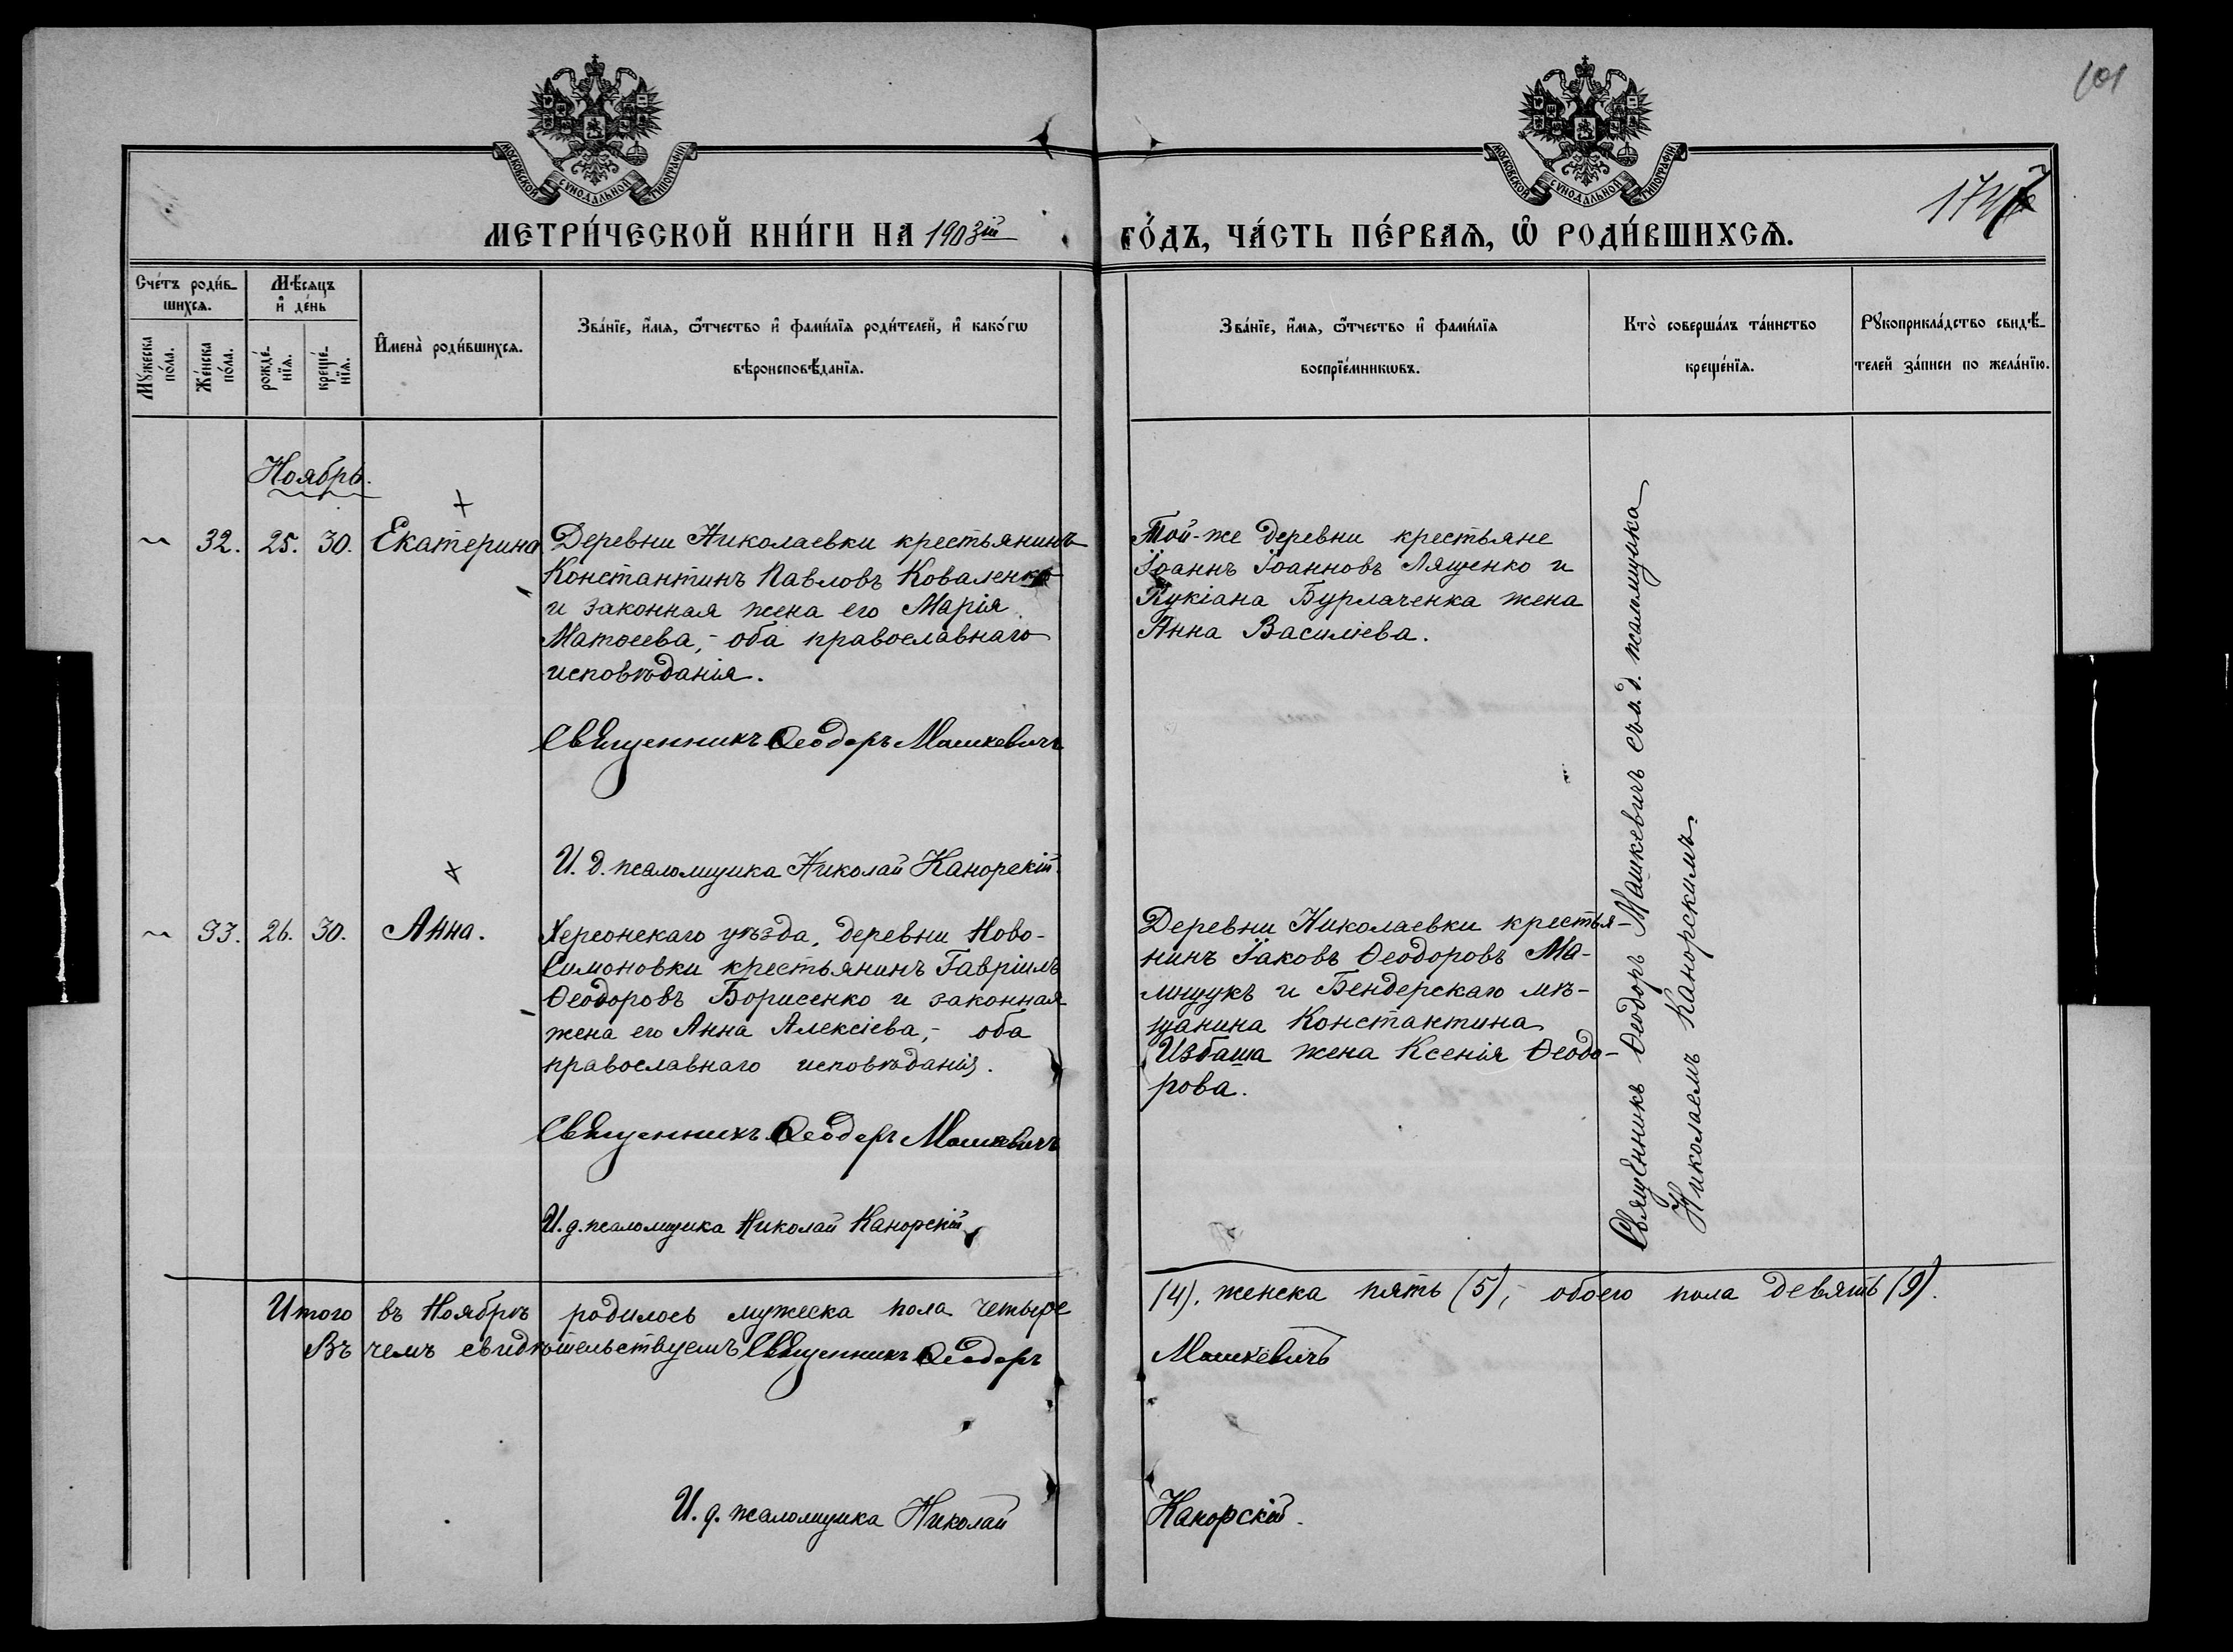 101
МОСКОВСКОЙ СУНОДАЛЬНОЙ ТИПОГРАФІИ
МОСКОВСКОЙ СУНОДАЛЬНОЙ ТИПОГРАФІИ
МЕТРИ́ЧЕСКОЙ КНИ́ГИ НА 1903ій
ГО́ДЪ, ЧА́СТЬ ПЕ́РВАѦ, Ѡ РОДИ́ВШИХСѦ.
Сче́тъ роди́в-
шихсѧ.
Мѣ́сяцъ
и҆ де́нь
Мꙋ́жеска
по́ла.
Же́нска
по́ла.
рожде́-
нїѧ.
креще́-
нїѧ.
И҆мена̀ роди́вшихсѧ.
Зва́нїе, и҆́мѧ, ѻ҆́тчество и҆ фами́лїѧ роди́телей, и҆ како́гѡ
вѣроисповѣ́данїѧ.
Зва́нїе, и҆́мѧ, ѻ҆́тчество и҆ фами́лїѧ
воспрїе́мникѡвъ.
Кто̀ соверша́лъ та́инство
креще́нїѧ.
Рꙋкоприкла́дство свидѣ́-
телей за́писи по жела́нїю.
Ноябрь.
32. 25. 30. Екатерина
Деревни Николаевки крестьянинъ
Константинъ Павловъ Коваленко
и законная жена его Марія
Матѳеева, - оба православнаго
исповѣданія.
Священникъ Ѳеодоръ Машкевичъ
И. д. псаломщика Николай Канорскій.
Той-же деревни крестьяне
Іоаннъ Іоанновъ Лященко и
Лукіана Бурлаченка жена
Анна Василіева.
33. 26. 30. Анна.
Херсонскаго уѣзда, деревни Ново-
Симоновки крестьянинъ Гавріилъ
Ѳеодоровъ Борисенко и законная
жена его Анна Алексіева, - оба
православнаго исповѣданія.
Священникъ Ѳеодоръ Машкевичъ
И. д. псаломщика Николай Канорскій
Деревни Николаевки крестья-
нинъ Іаковъ Ѳеодоровъ Ма-
лищукъ и Бендерскаго мѣ-
щанина Константина
Избаша жена Ксенія Ѳеодо-
рова.
Священникъ Ѳеодоръ Машкевичъ съ и. д. псаломщика
Николаемъ Канорскимъ.
Итого въ Ноябрѣ родилось мужеска пола четыре
(4), женска пять (5), - обоего пола девять (9).
Въ чемъ свидѣтельствуемъ Священникъ Ѳеодоръ
Машкевичъ
И. д. псаломщика Николай
Канорскій.